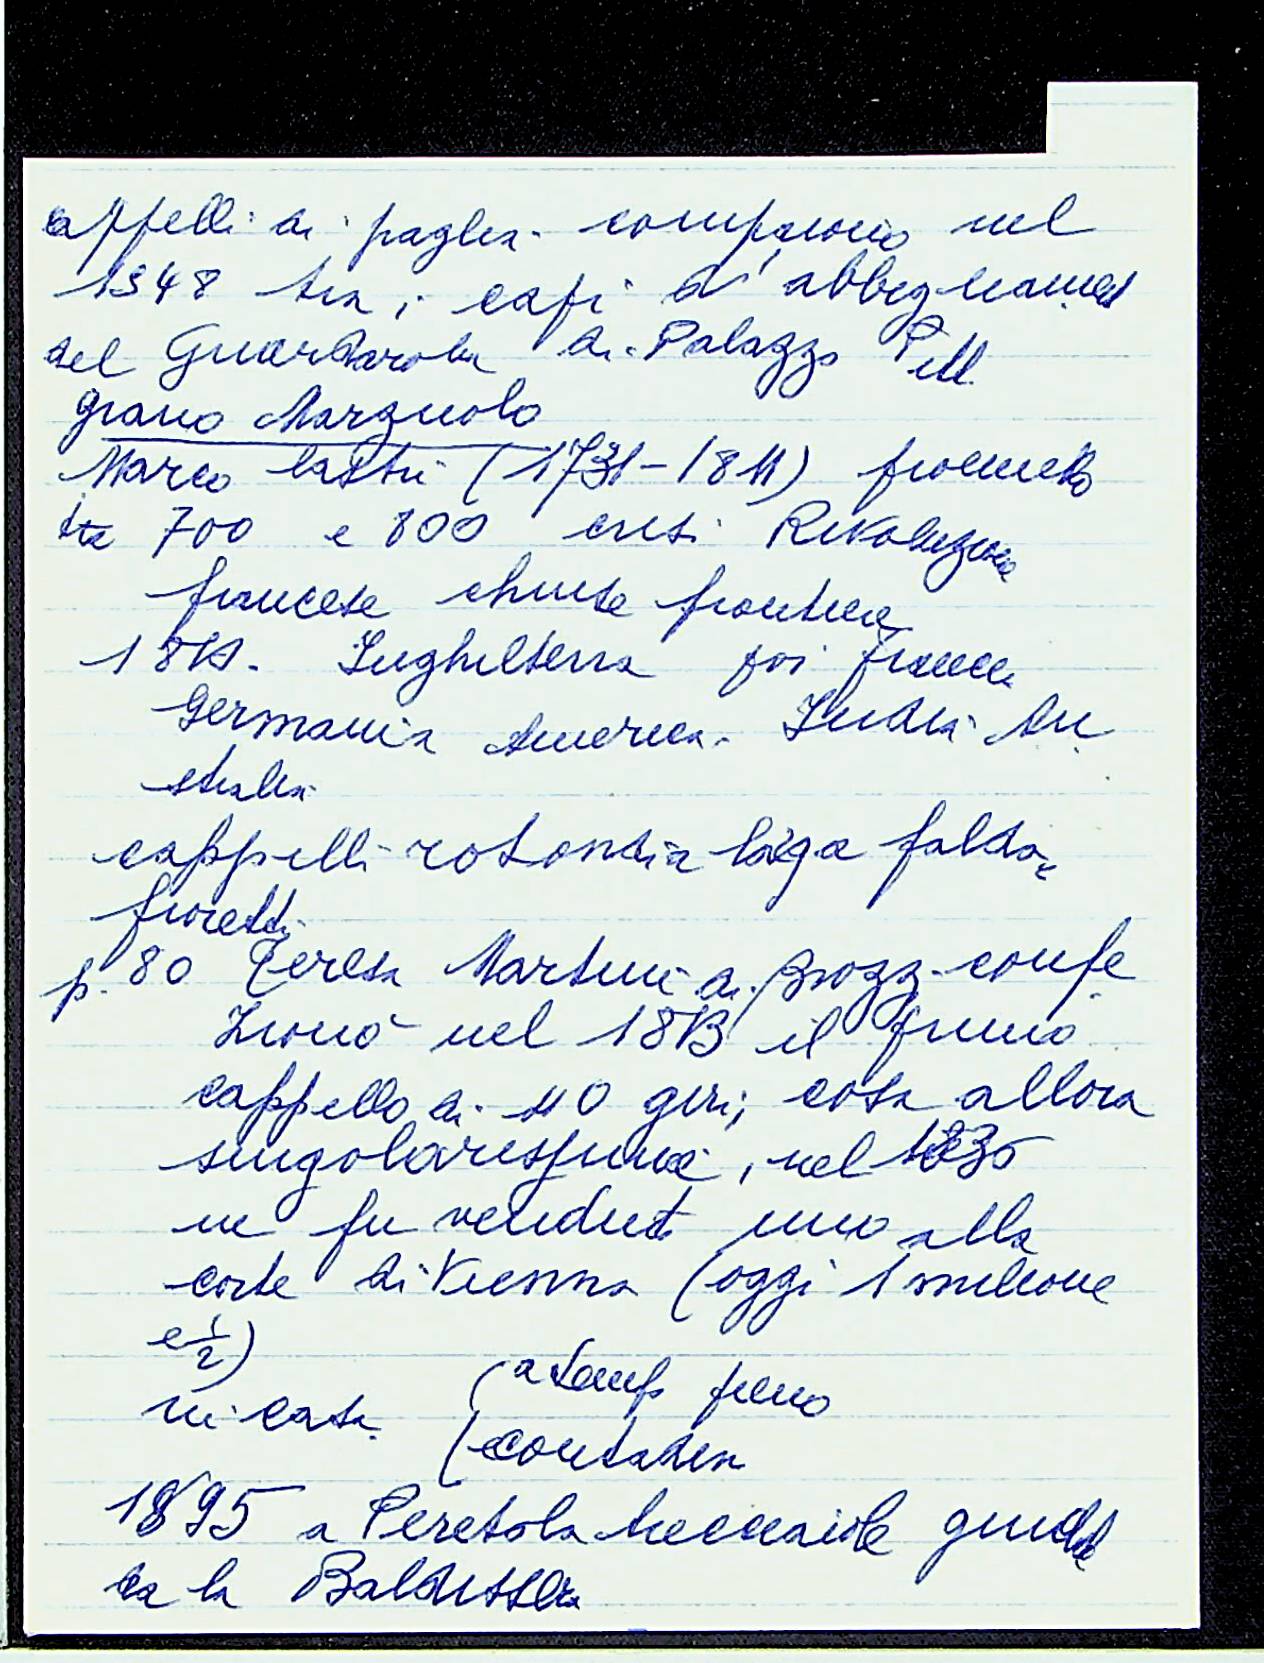 cappelli di paglia compaiono nel
1548 tra i capi d'abbigliamento
del Guardaroba di Palazzo Pitti
grano Marzuolo
Marco lastri (1731-1811) frumento
tra 700 e 800 crisi Rivoluzione
francese chiuse frontiere
Inghilterra poi Francia
Germania America India Au
stralia
cappelli rotondi a larga falda e
fioretti
p. 80 Teresa Martini di Brozzi confe
zionò nel il primo
cappello di 110 giri, cosa allora
singolarissima, nel 1835
ne fu venduto uno alla
corte di Vienna (oggi 1 milione
e 1/2)
in casa (a tempo pieno
(contadina
1895 a Peretola trecciaiole guidate
da la Baldissera